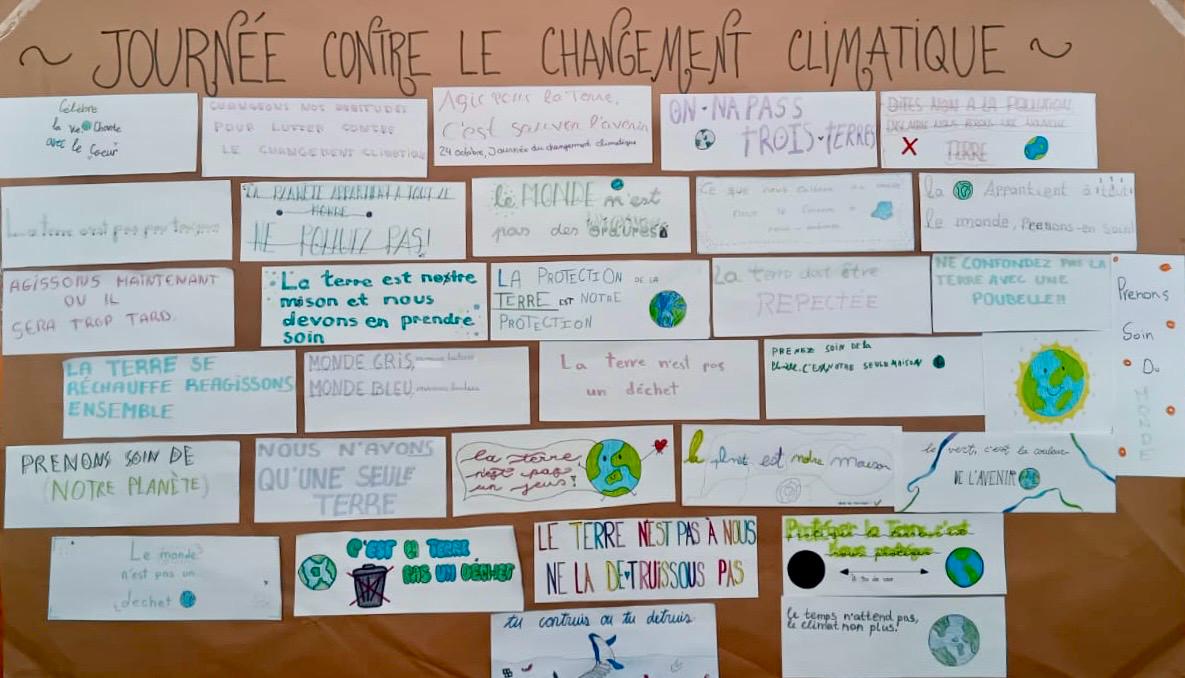 ~ JOURNÉE CONTRE LE CHANGEMENT CLIMATIQUE ~
Célèbre
la vie Chante
avec le Coeur
CHANGEONS NOS HABITUDES
POUR LUTTER CONTRE
LE CHANGEMENT CLIMATIQUE
Agir pour la Terre,
C'est sauver l'avenir
24 octobre, Journée du changement climatique
ON-NA PASS
TROIS-TERRES
DITES NON A LA POLLUTION
TERRE
La terre n'est pas
LA PLANÈTE APPARTIENT A TOUT LE
MONDE
NE POLLUEZ PAS!
le MONDE n'est
pas des ordures
Ce que nous faisons
la Appartient à tout
le monde, Prenons-en soin!
AGISSONS MAINTENANT
OU IL
SERA TROP TARD.
La terre est nostre
mison et nous
devons en prendre
soin
LA PROTECTION DE LA
TERRE EST NOTRE
PROTECTION
La terre doit être
REPECTÉE
NE CONFONDEZ PAS LA
TERRE AVEC UNE
POUBELLE!!
Prenons
Soin
Du
MONDE
LA TERRE SE
RÉCHAUFFE REAGISSONS
ENSEMBLE
MONDE GRIS,
MONDE BLEU,
La terre n'est pas
un déchet
PRENEZ SOIN DE LA
C'EST NOTRE SEULE MAISON
PRENONS SOIN DE
(NOTRE PLANÈTE)
NOUS N'AVONS
QU'UNE SEULE
TERRE
la terre
n'est pas
un jeus!
la planet est notre maison
le vert, c'est la couleur
DE L'AVENIR
Le monde
n'est pas un
dechet
C'EST LA TERRE
PAS UN DÉCHET
LE TERRE N'EST PAS À NOUS
NE LA DETRUISSOUS PAS
Protéger la Terre c'est
nous protéger
tu contruis ou tu detruis
le temps n'attend pas,
le climat non plus.